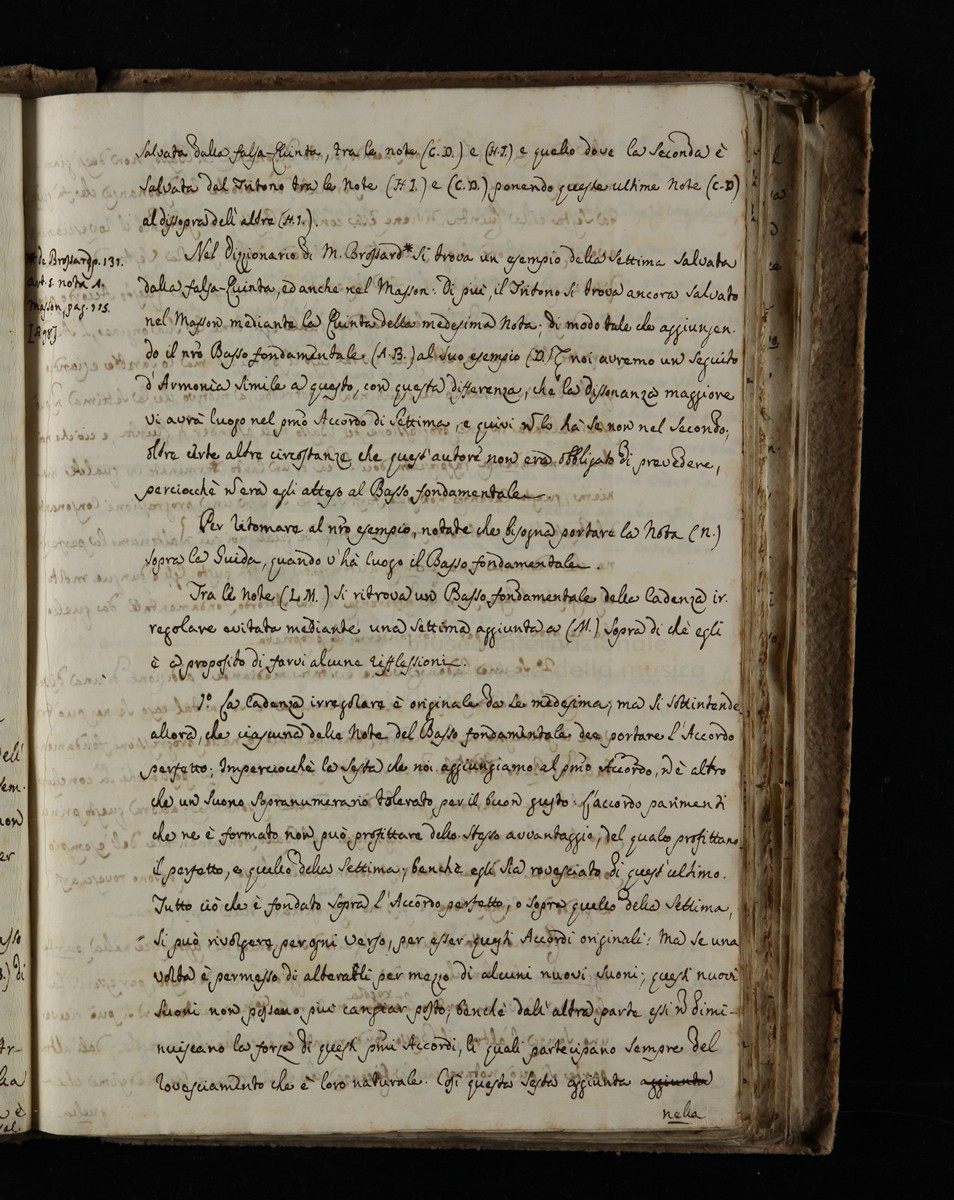 salvata dalla falsa-Quinta, tra le note (C.D.) e (H.I.) e quello dove la Seconda è
salvata dal Tritono tra le Note (H.I.) e (C.D.) ponendo queste ultime Note (C.D)
al dissopra dell'altre (H.I.).
Nel Dizionario di M. Brossard* si trova un esempio della Settima salvata
dalla falsa-Quinta, ed anche nel Masson. Di più, il Tritono si trova ancora salvato
nel Masson mediante la Quinta della medesima Nota. di modo tale che aggiungen.
do il nro Basso fondamentale (A.B.) al suo esempio (D. noi avremo un seguito
d'Armonia simile a questo, con questa differenza, che la dissonanza maggiore
vi avrà luogo nel pmo Accordo di Settima, e quivi n lo hà se non nel Secondo,
oltre altre circostanze che quest'autore non era obbligato di prevedere,
perciocchè n era egli atteso al Basso fondamentale.
Per ritornare al nro esempio, notate che bisogna portare la Nota (N.)
sopra la Guida, quando v'hà luogo il Basso fondamentale.
Tra le note (L.M.) si ritrova un Basso fondamentale della Cadenza ir.
regolare evitata mediante una Settima aggiunta a (M.) sopra di chè egli
è a proposito di farvi alcune riflessioni.
1.º La Cadenza irregolare è originale da se medesima; ma si sottintende
allora, che ciascuna delle Note del Basso fondamentale dee portare l'Accordo
perfetto; Imperciocchè la Sesta che noi aggiungiamo al pmo Accordo, n è altro
che un Suono Sopranumerario tolerato per il buon gusto: L'accordo parimenti
che ne è formato non può profittare dello stesso avvantaggio, del quale profittano
il perfetto, e quello della Settima; benchè egli sia rovesciato di quest'ultimo.
Tutto ciò che è fondato sopra l'Accordo perfetto, o sopra quello della Settima,
si può rivolgere per ogni verso, per esser questi Accordi originali: Ma se una
volta è permesso di alterarli per mezzo di alcuni nuovi suoni; questi nuovi
Suoni non possano più cangiar posto, benchè dall'altra parte essi n dimi-
nuiscano la forza di questi pmi Accordi, li quali partecipano sempre del
rovesciamento che è loro naturale. Così questa Sesta aggiunta aggiunta
nella
de Brossard p. 131.
nota A.
Masson, pag. 115.